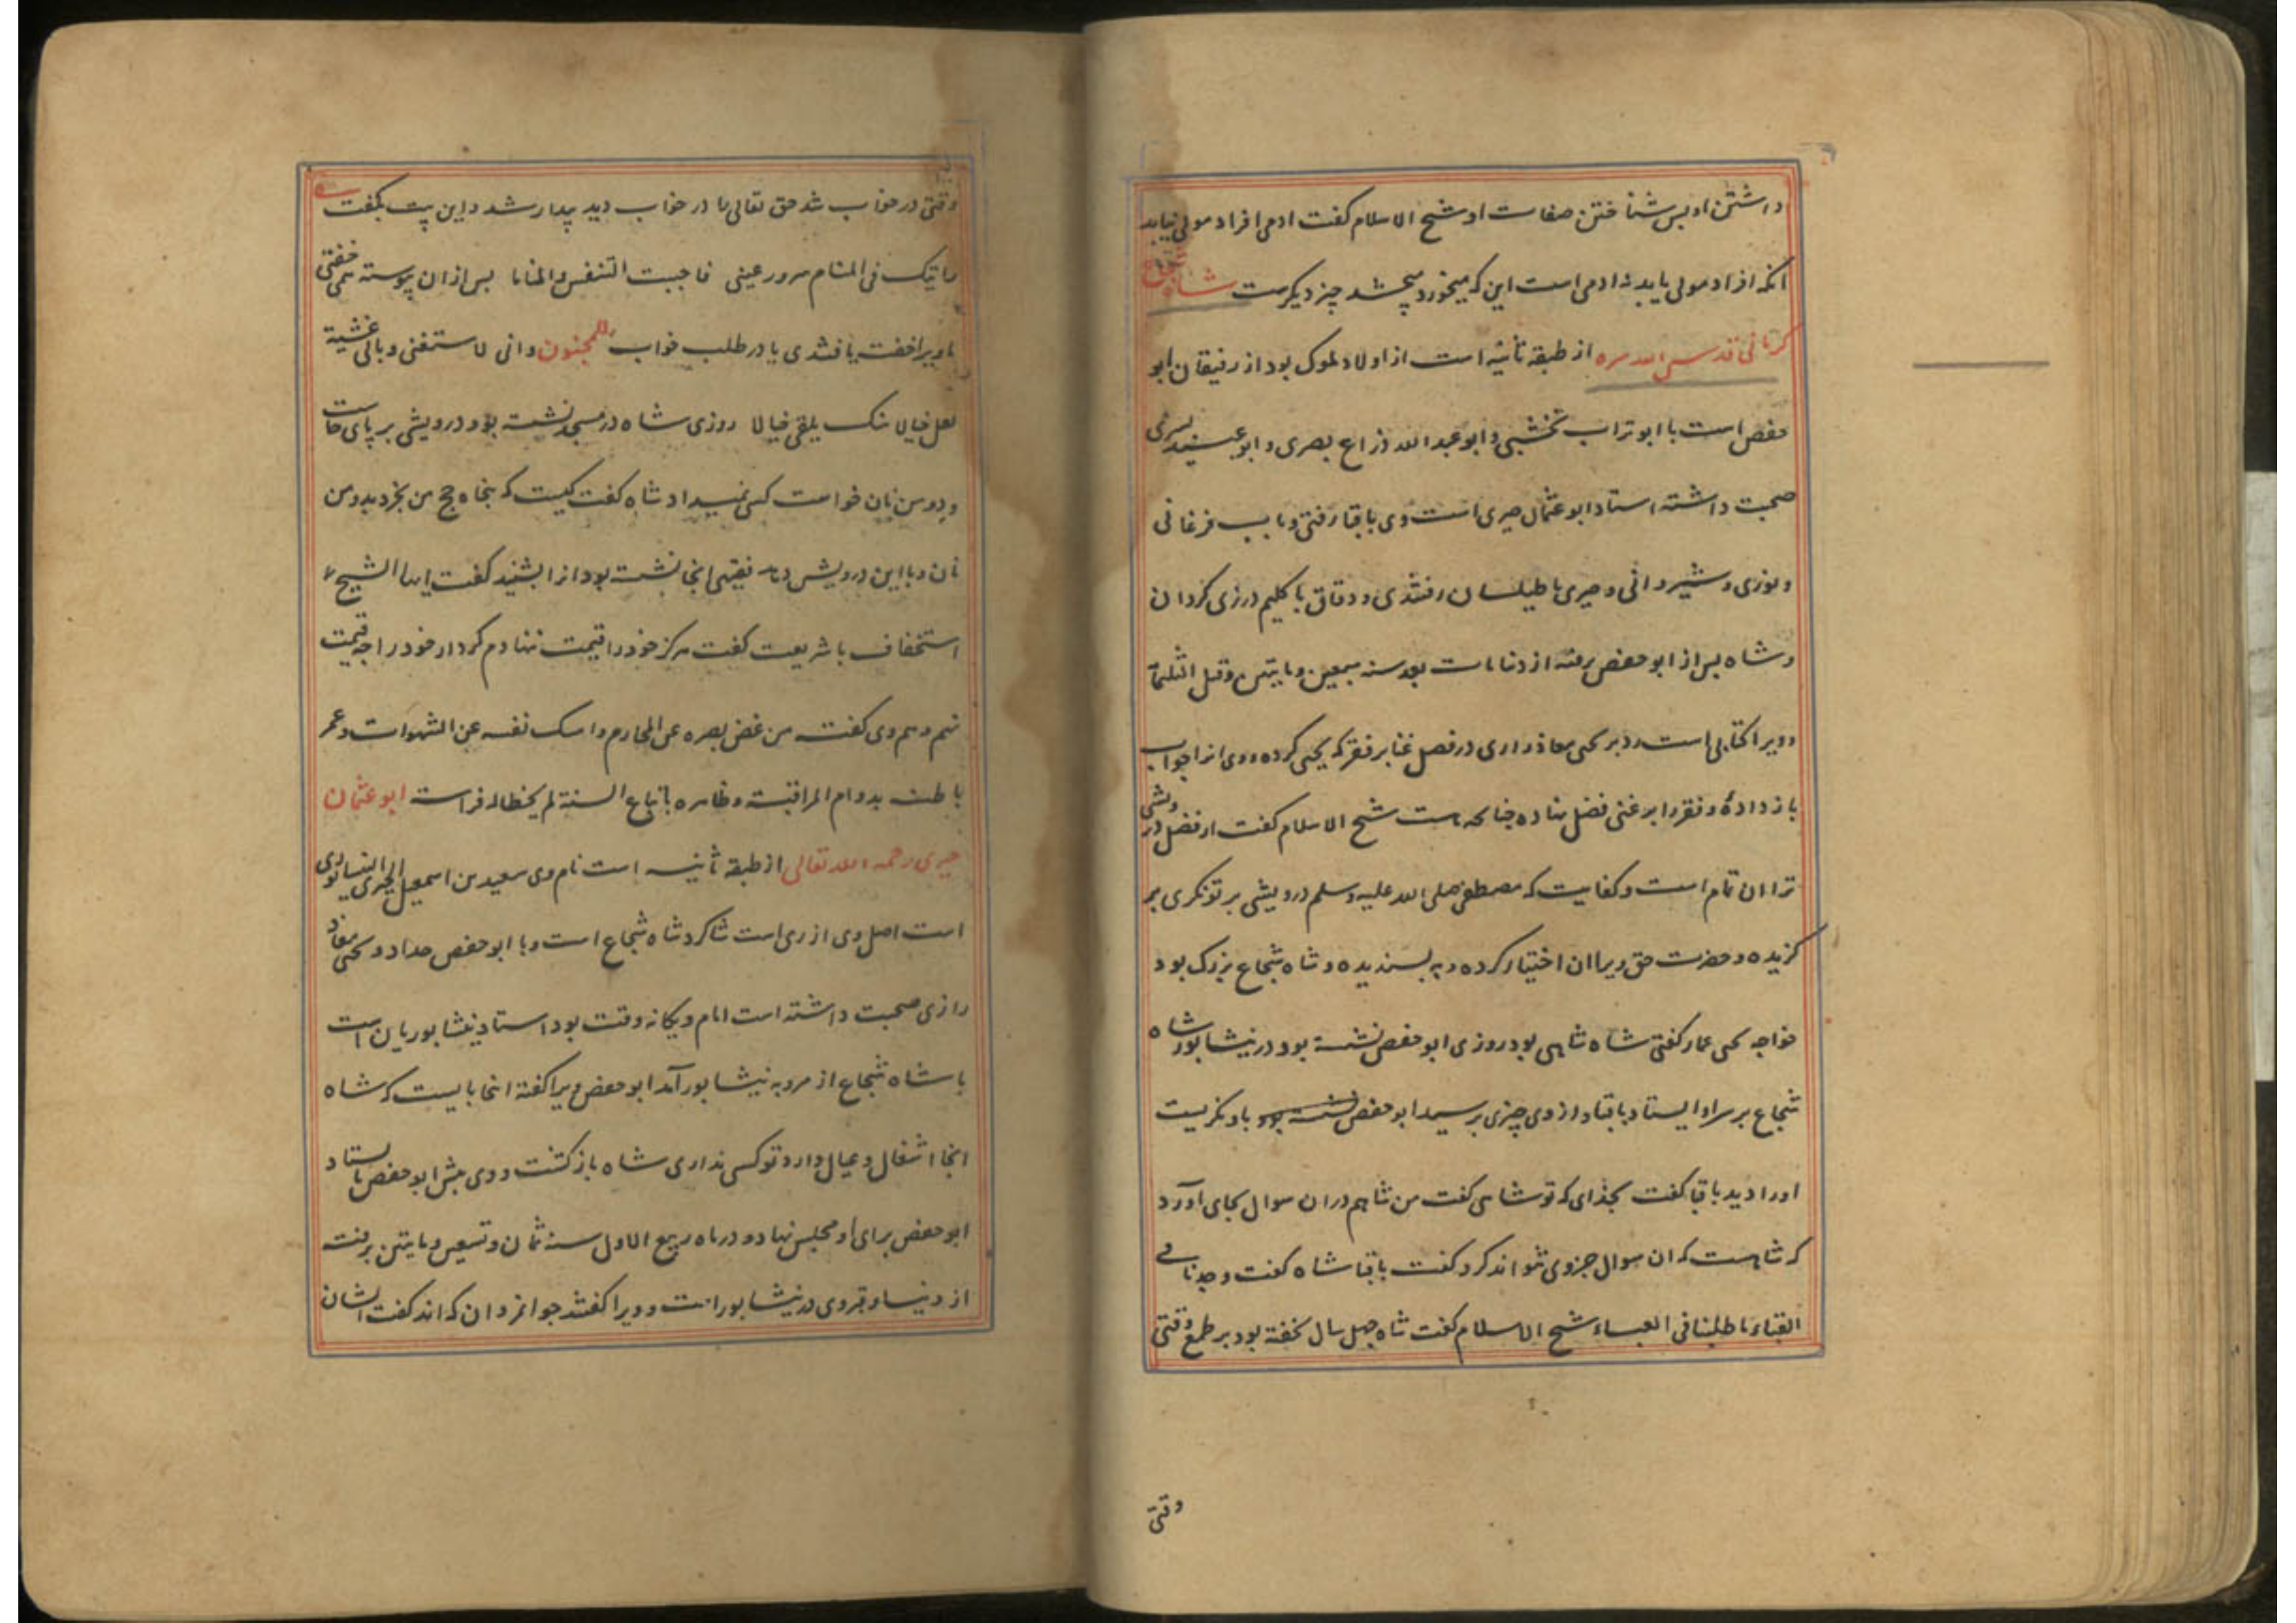 داشتن او بس شناختن صفات او شیخ الاسلام کفت ادمی افراد مولی نیابد
انکه افراد مولی یابد نه ادمی است این که میخورد میچشد چیز دیکرست شاه شجاع
کرمانی قدس الله سره از طبقه ثانیه است از اولاد ملوک بود از رفیقان ابو
حفص است با ابو تراب نخشبی و ابو عبد الله ذراع بصری و ابو عبید بسری
صحبت داشته استاد ابو عثمان حیری است وی باقبا رفتی و باب فرغانی
و نوری و شیروانی و حیری با طیلسان رفتندی و دقاق با کلیم درزی کردان
و شاه بس از ابو حفص برفته از دنیا مات بعد سنه سبعین و مایتین و قبل الثلثمایة
و ویرا کتابی است رد بر یحیی معاذ رازی در فصل غنا بر فقر که یحیی کرده و وی انرا جواب
باز داده و فقر را بر غنی فضل نهاده چنانکه هست شیخ الاسلام کفت از فضل درویشی
ترا ان تمام است و کفایت که مصطفی صلی الله علیه وسلم درویشی بر تونکری بر
کزیده و حضرت حق ویرا ان اختیار کرده و به بسندیده و شاه شجاع بزرک بود
خواجه یحیی عمار کفتی شاه شاهی بود روزی ابو حفص نشسته بود در نیشابور شاه
شجاع بر سر او ایستاد باقبا و از وی چیزی برسید ابو حفص نشسته بود باو نکریست
او را دید باقبا کفت بخدای که تو شاهی کفت من شاهم در ان سوال بجای آورد
که شاهست که ان سوال جز وی نتواند کرد کفت باقبا شاه کفت وجدنا فی
القباء ما طلبنا فی العباء شیخ الاسلام کفت شاه چهل سال نخفته بود بر طمع وقتی
وقتی
وقتی در خواب شد حق تعالی را در خواب دید بیدار شد و این بیت بکفت
رایتک فی المنام سرور عینی فاحببت التنفس والمناما بس از ان پیوسته همی خفتی
یا ویرا خفته یافتندی یا در طلب خواب للمجنون وانی لاستنعس وما بی غشیة
لعل خیالا منک یلقی خیالا روزی شاه در مسجد نشسته بود درویشی بر پای خاست
و دو من نان خواست کسی نمیداد شاه کفت کیست که پنجاه حج من بخرد بدو من
نان و باین درویش دهد فقیهی انجا نشسته بود انرا بشنید کفت ایها الشیخ
استخفاف با شریعت کفت هرکز خود را قیمت ننهادم کردار خود را چه قیمت
نهم و هم وی کفت من غض بصره عن المحارم و امسک نفسه عن الشهوات و عمر
باطنه بدوام المراقبة و ظاهره باتباع السنة لم یخط له فراسة ابو عثمان
حیری رحمه الله تعالی از طبقه ثانیه است نام وی سعید بن اسمعیل الحیری النیسابوری
است اصل وی از ری است شاکرد شاه شجاع است و با ابو حفص حداد و یحیی معاذ
رازی صحبت داشته است امام و یکانه وقت بود استاد نیشابوریان است
با شاه شجاع از مرو به نیشابور آمد ابو حفص ویرا کفته انجا بایست که شاه
انجا اشغال و عیال دارد تو کسی نداری شاه باز کشت و وی پیش ابو حفص بایستاد
ابو حفص برای او مجلس نهاد و در ماه ربیع الاول سنه ثمان و تسعین و مایتین برفته
از دنیا و قبر وی در نیشابور است و ویرا کفتند جوانمردان که اند کفت ایشان